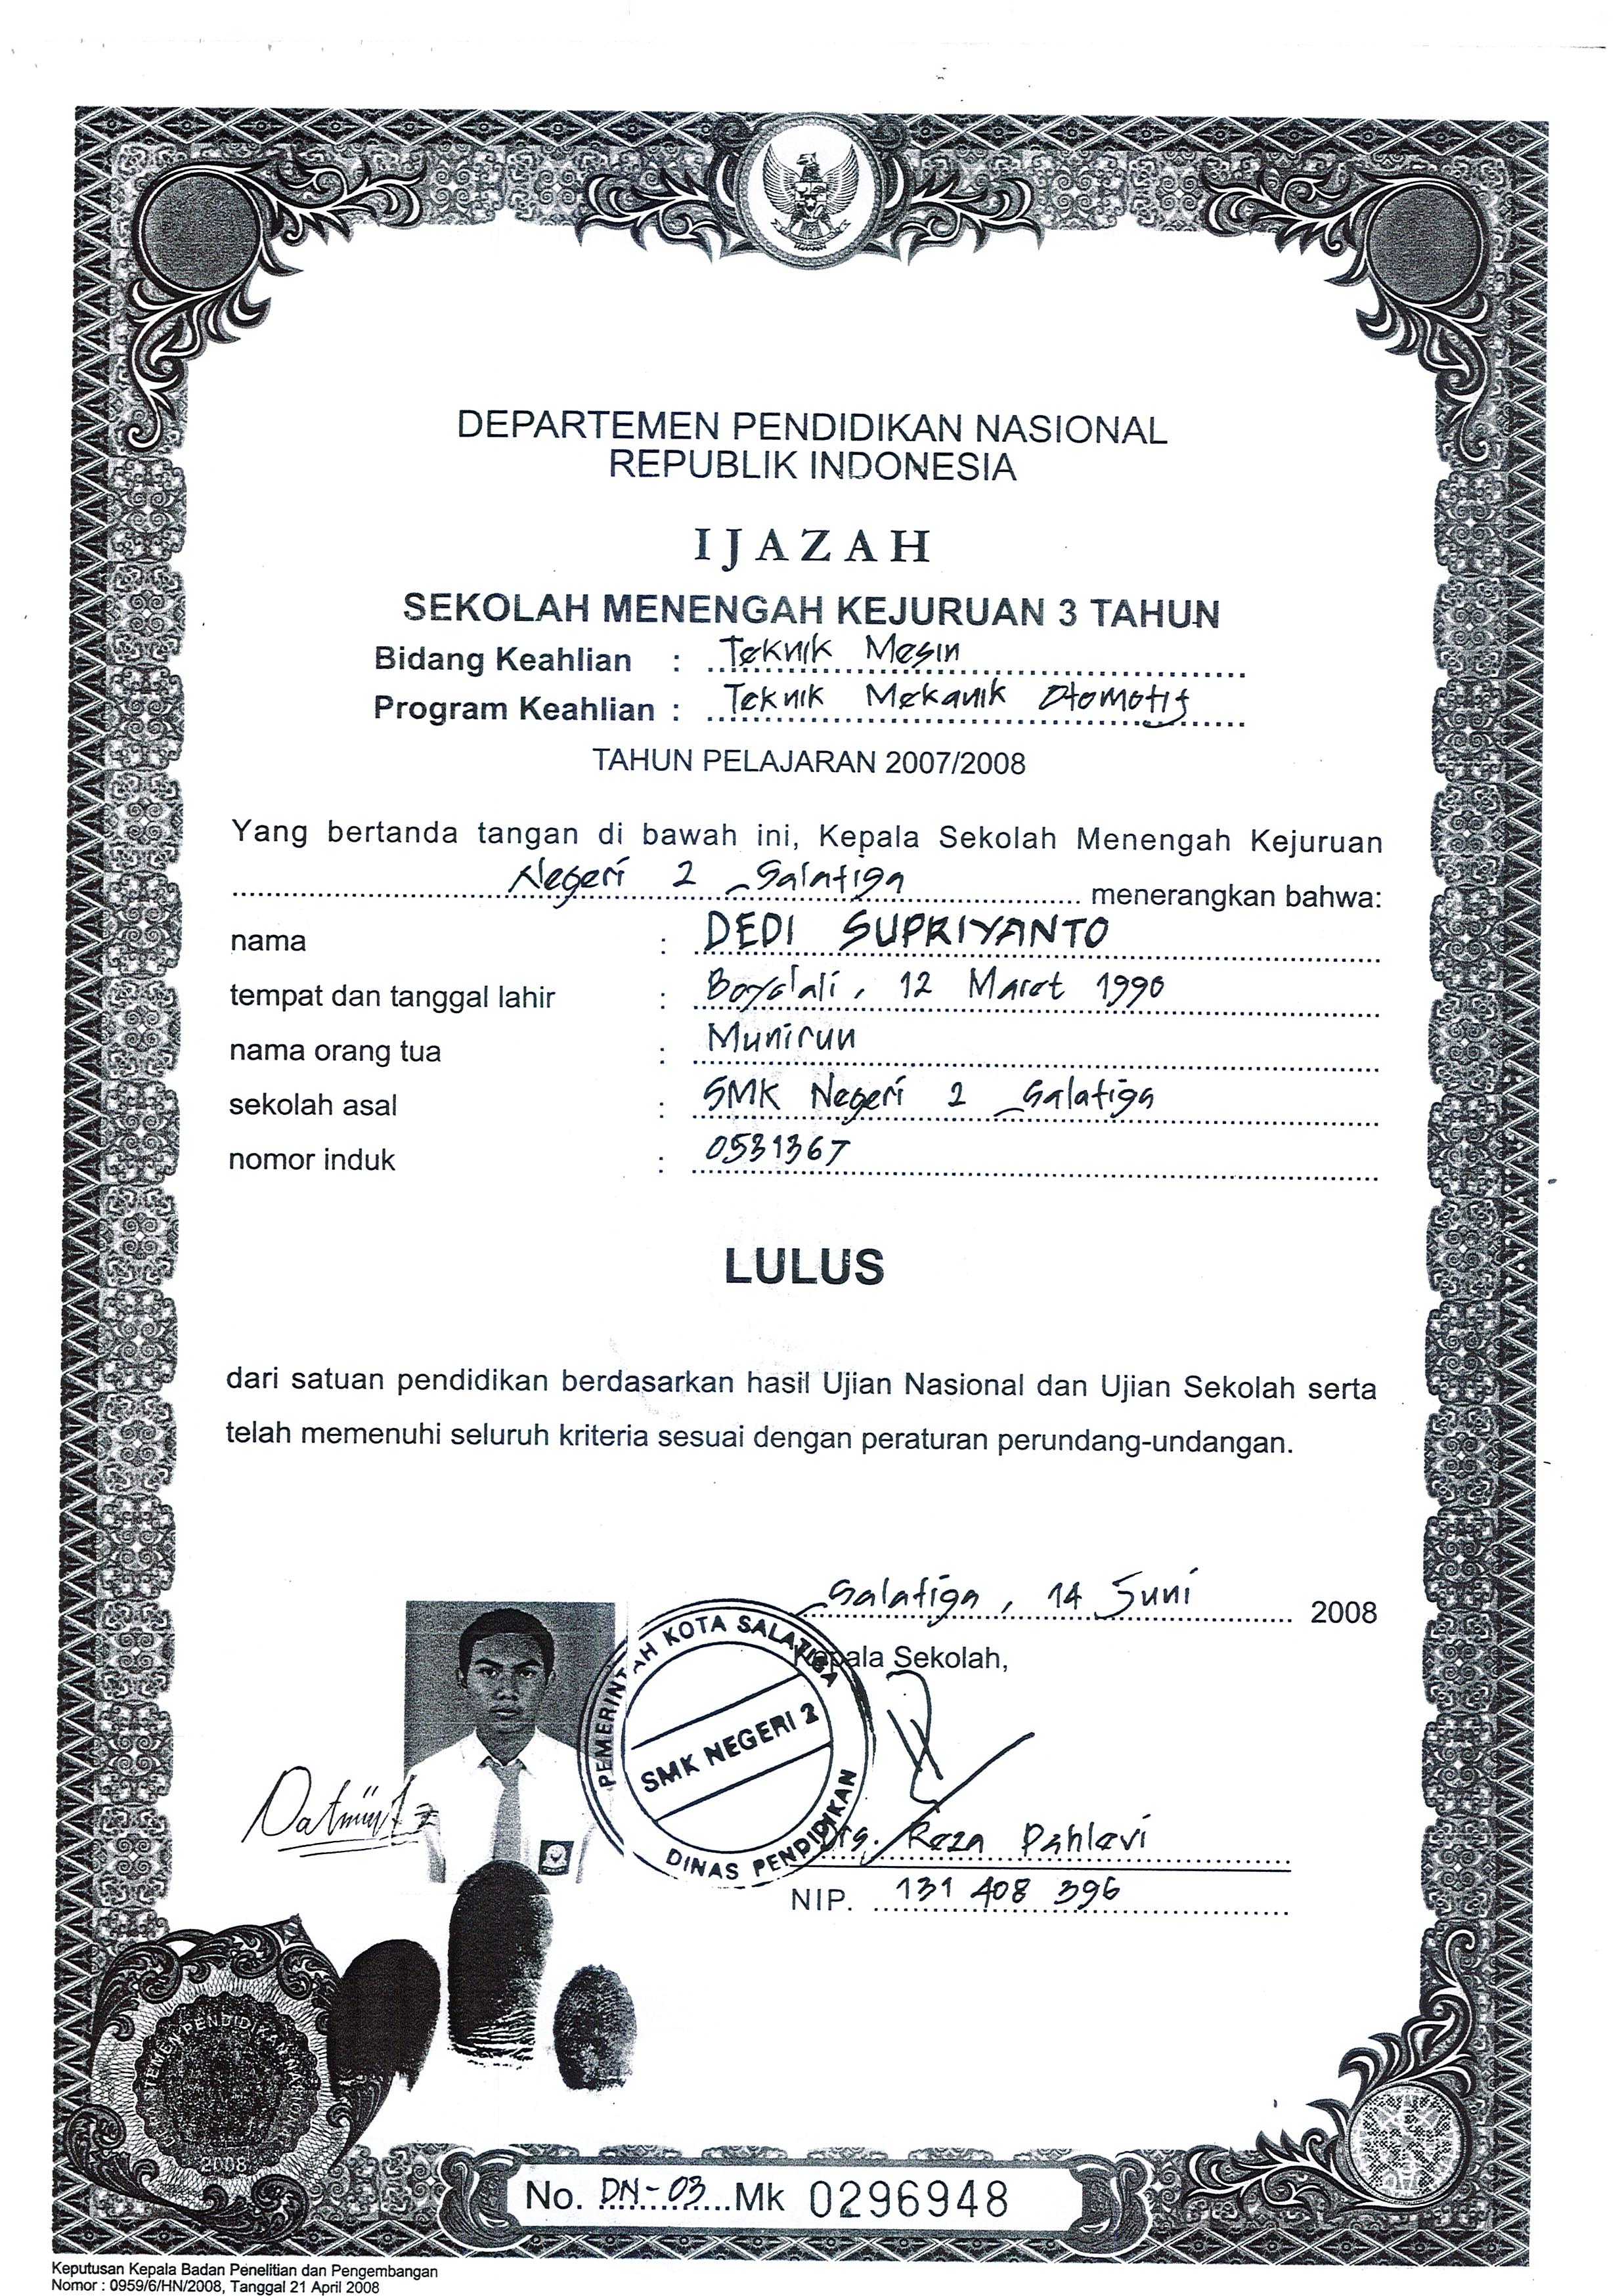 DEPARTEMEN PENDIDIKAN NASIONAL
REPUBLIK INDONESIA
IJAZAH
SEKOLAH MENENGAH KEJURUAN 3 TAHUN
Bidang Keahlian : Teknik Mesin
Program Keahlian : Teknik Mekanik Otomotif
TAHUN PELAJARAN 2007/2008
Yang bertanda tangan di bawah ini, Kepala Sekolah Menengah Kejuruan
Negeri 2 Salatiga menerangkan bahwa:
nama : DEDI SUPRIYANTO
tempat dan tanggal lahir : Boyolali, 12 Maret 1990
nama orang tua : Munirun
sekolah asal : SMK Negeri 2 Salatiga
nomor induk : 0531367
LULUS
dari satuan pendidikan berdasarkan hasil Ujian Nasional dan Ujian Sekolah serta
telah memenuhi seluruh kriteria sesuai dengan peraturan perundang-undangan.
Salatiga, 14 Juni 2008
Kepala Sekolah,
PEMERINTAH KOTA SALATIGA
SMK NEGERI 2
DINAS PENDIDIKAN
Drs. Reza Pahlevi
NIP. 131 408 396
PENDIDIKAN NASIONAL
2008
No. DN-03 Mk 0296948
Keputusan Kepala Badan Penelitian dan Pengembangan
Nomor : 0959/6/HN/2008, Tanggal 21 April 2008